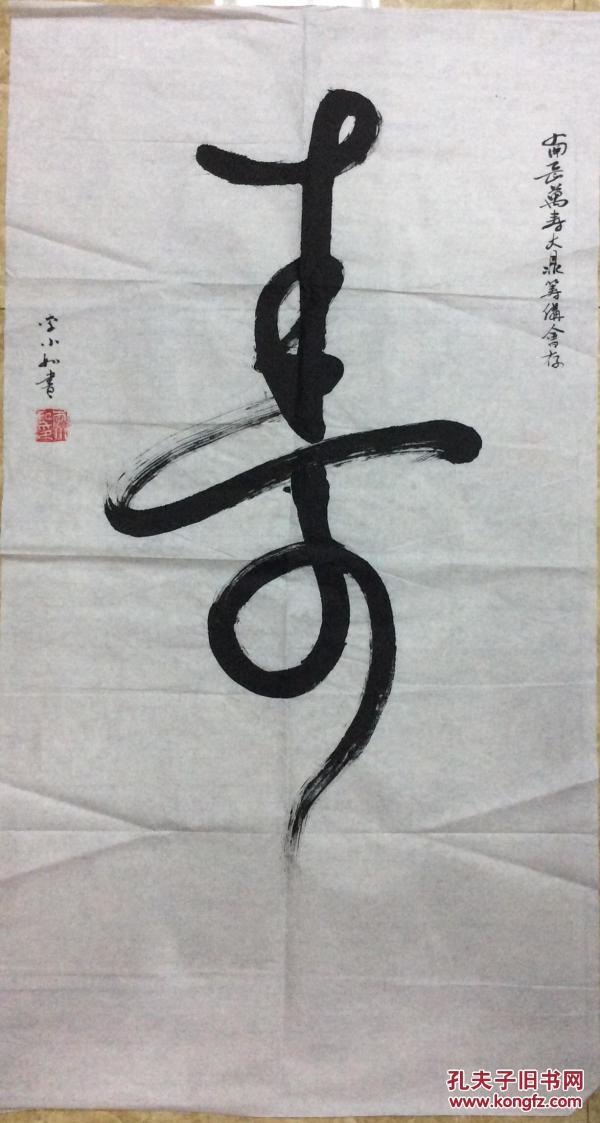 南岳萬寿大鼎筹備會存
寿
李小如書
孔夫子旧书网
www.kongfz.com